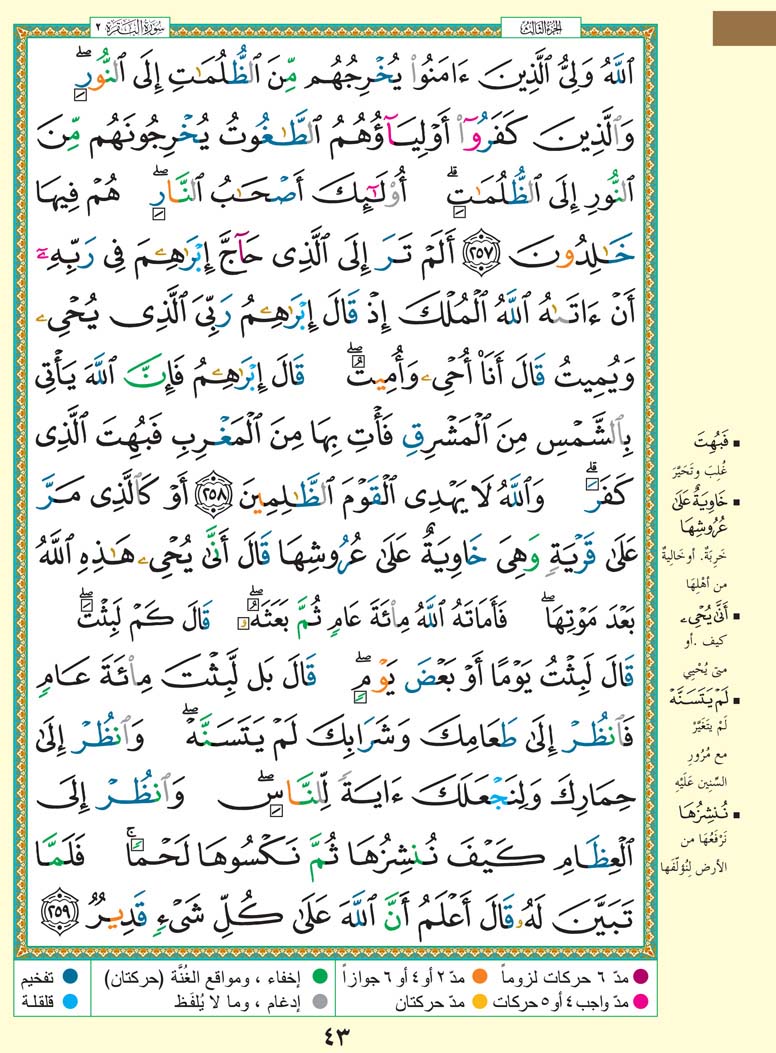 الجزء الثالث
سورة البقرة ٢
ٱللَّهُ وَلِىُّ ٱلَّذِينَ ءَامَنُوا۟ يُخْرِجُهُم مِّنَ ٱلظُّلُمَـٰتِ إِلَى ٱلنُّورِ ۖ
وَٱلَّذِينَ كَفَرُوٓا۟ أَوْلِيَآؤُهُمُ ٱلطَّـٰغُوتُ يُخْرِجُونَهُم مِّنَ
ٱلنُّورِ إِلَى ٱلظُّلُمَـٰتِ ۗ أُو۟لَـٰٓئِكَ أَصْحَـٰبُ ٱلنَّارِ ۖ هُمْ فِيهَا
خَـٰلِدُونَ ٢٥٧ أَلَمْ تَرَ إِلَى ٱلَّذِى حَآجَّ إِبْرَٰهِـۧمَ فِى رَبِّهِۦٓ
أَنْ ءَاتَىٰهُ ٱللَّهُ ٱلْمُلْكَ إِذْ قَالَ إِبْرَٰهِـۧمُ رَبِّىَ ٱلَّذِى يُحْىِۦ
وَيُمِيتُ قَالَ أَنَا۠ أُحْىِۦ وَأُمِيتُ ۖ قَالَ إِبْرَٰهِـۧمُ فَإِنَّ ٱللَّهَ يَأْتِى
بِٱلشَّمْسِ مِنَ ٱلْمَشْرِقِ فَأْتِ بِهَا مِنَ ٱلْمَغْرِبِ فَبُهِتَ ٱلَّذِى
كَفَرَ ۗ وَٱللَّهُ لَا يَهْدِى ٱلْقَوْمَ ٱلظَّـٰلِمِينَ ٢٥٨ أَوْ كَٱلَّذِى مَرَّ
عَلَىٰ قَرْيَةٍ وَهِىَ خَاوِيَةٌ عَلَىٰ عُرُوشِهَا قَالَ أَنَّىٰ يُحْىِۦ هَـٰذِهِ ٱللَّهُ
بَعْدَ مَوْتِهَا ۖ فَأَمَاتَهُ ٱللَّهُ مِا۟ئَةَ عَامٍ ثُمَّ بَعَثَهُۥ ۖ قَالَ كَمْ لَبِثْتَ ۖ
قَالَ لَبِثْتُ يَوْمًا أَوْ بَعْضَ يَوْمٍ ۖ قَالَ بَل لَّبِثْتَ مِا۟ئَةَ عَامٍ
فَٱنظُرْ إِلَىٰ طَعَامِكَ وَشَرَابِكَ لَمْ يَتَسَنَّهْ ۖ وَٱنظُرْ إِلَىٰ
حِمَارِكَ وَلِنَجْعَلَكَ ءَايَةً لِّلنَّاسِ ۖ وَٱنظُرْ إِلَى
ٱلْعِظَامِ كَيْفَ نُنشِزُهَا ثُمَّ نَكْسُوهَا لَحْمًا ۚ فَلَمَّا
تَبَيَّنَ لَهُۥ قَالَ أَعْلَمُ أَنَّ ٱللَّهَ عَلَىٰ كُلِّ شَىْءٍ قَدِيرٌ ٢٥٩
▪ فَبُهِتَ
غُلِبَ وتَحَيَّرَ
▪ خَاوِيَةٌ عَلَىٰ
عُرُوشِهَا
خَرِبَةٌ. أو خَالِيةٌ
من أهْلِهَا
▪ أَنَّىٰ يُحْىِۦ
كيف .أو
متى يُحْيِي
▪ لَمْ يَتَسَنَّهْ
لَمْ يتَغَيَّرْ
مع مُرُورِ
السِّنِين عَلَيْهِ
▪ نُنشِزُهَا
نَرْفَعُهَا من
الأرض لِنُؤلِّفَها
مدّ ٦ حركات لزوماً
مدّ ٢ أو ٤ أو ٦ جوازاً
إخفاء ، ومواقع الغُنَّة (حركتان)
تفخيم
مدّ واجب ٤ أو ٥ حركات
مدّ حركتان
إدغام ، وما لا يُلفَظ
قلقلة
٤٣